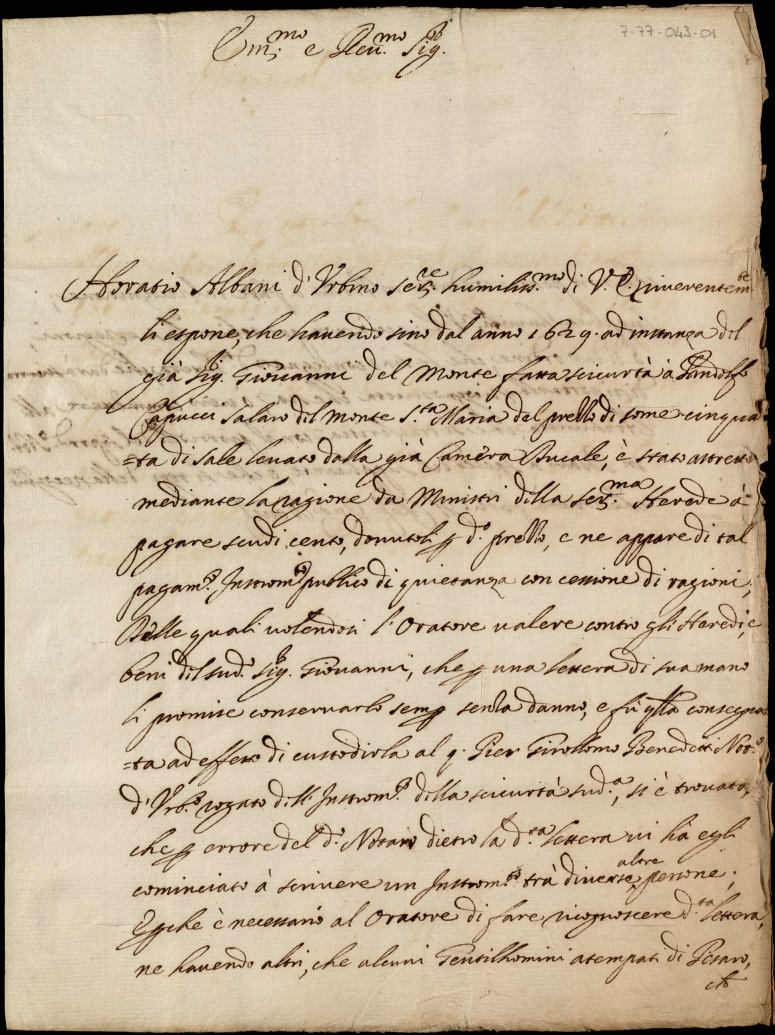 7-77-043-01
Em.mo e Reu.mo Sig.r
Horatio Albani d'Vrbino ser.re humiliss.mo di V. E. riuerentem.te
li espone, che hauendo sino dal anno 1629. ad instanza del
già Sig.r Giouanni del Monte fatta sicurtà à Pandolfo
Capucci Salaro del Monte S.ta Maria del prezzo di some cinqua
=ta di sale leuato dalla già Camera Ducale, è stato astretto
mediante la ragione da Ministri della Ser.ma Herede à
pagare scudi cento, douutoli p d.o prezzo, e ne appare di tal
pagam.to Instrom.to publico di quietanza con cessione di ragioni,
Delle quali uolendosi l'Oratore ualere contro gli Heredi, e
beni del sud.o Sig.r Giouanni, che p una lettera di sua mano
li promise conseruarlo semp senza danno, e fù qlla consegna
=ta ad effetto di custodirla al q. Pier Girollomo Benedetti Not.o
d'Vrb.o rogato dell'Instrom.to della sicurtà sud.a, si è trouato,
che p errore del d.o Notaro dietro la d.ta lettera ui hà egli
cominciato à scriuere un Instrom.to trà diuerse altre persone;
E pche è necessario al Oratore di fare ricognoscere d.ta lettera,
ne hauendo altri, che alcuni Gentilhomini atempati di Pesaro,